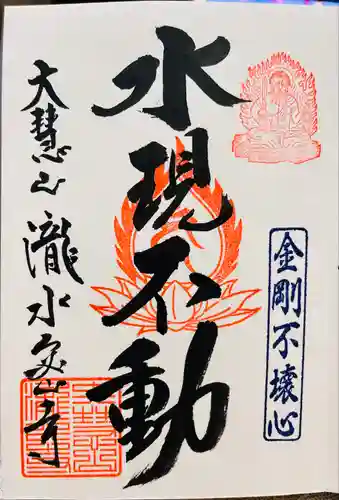 金剛不壊心
水現不動
大慧山 瀧水寺